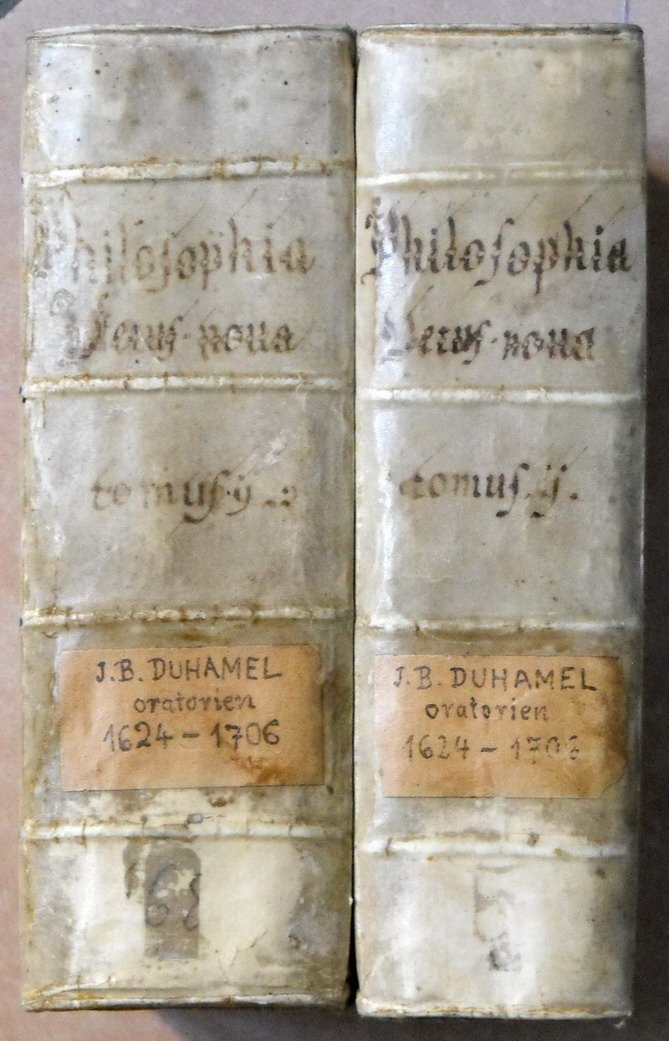 Philosophia
Vetus-noua
tomus.ij.
J.B. DUHAMEL
oratorien
1624 - 1706
Philosophia
Vetus-noua
tomus.ij.
J.B. DUHAMEL
oratorien
1624 - 1706